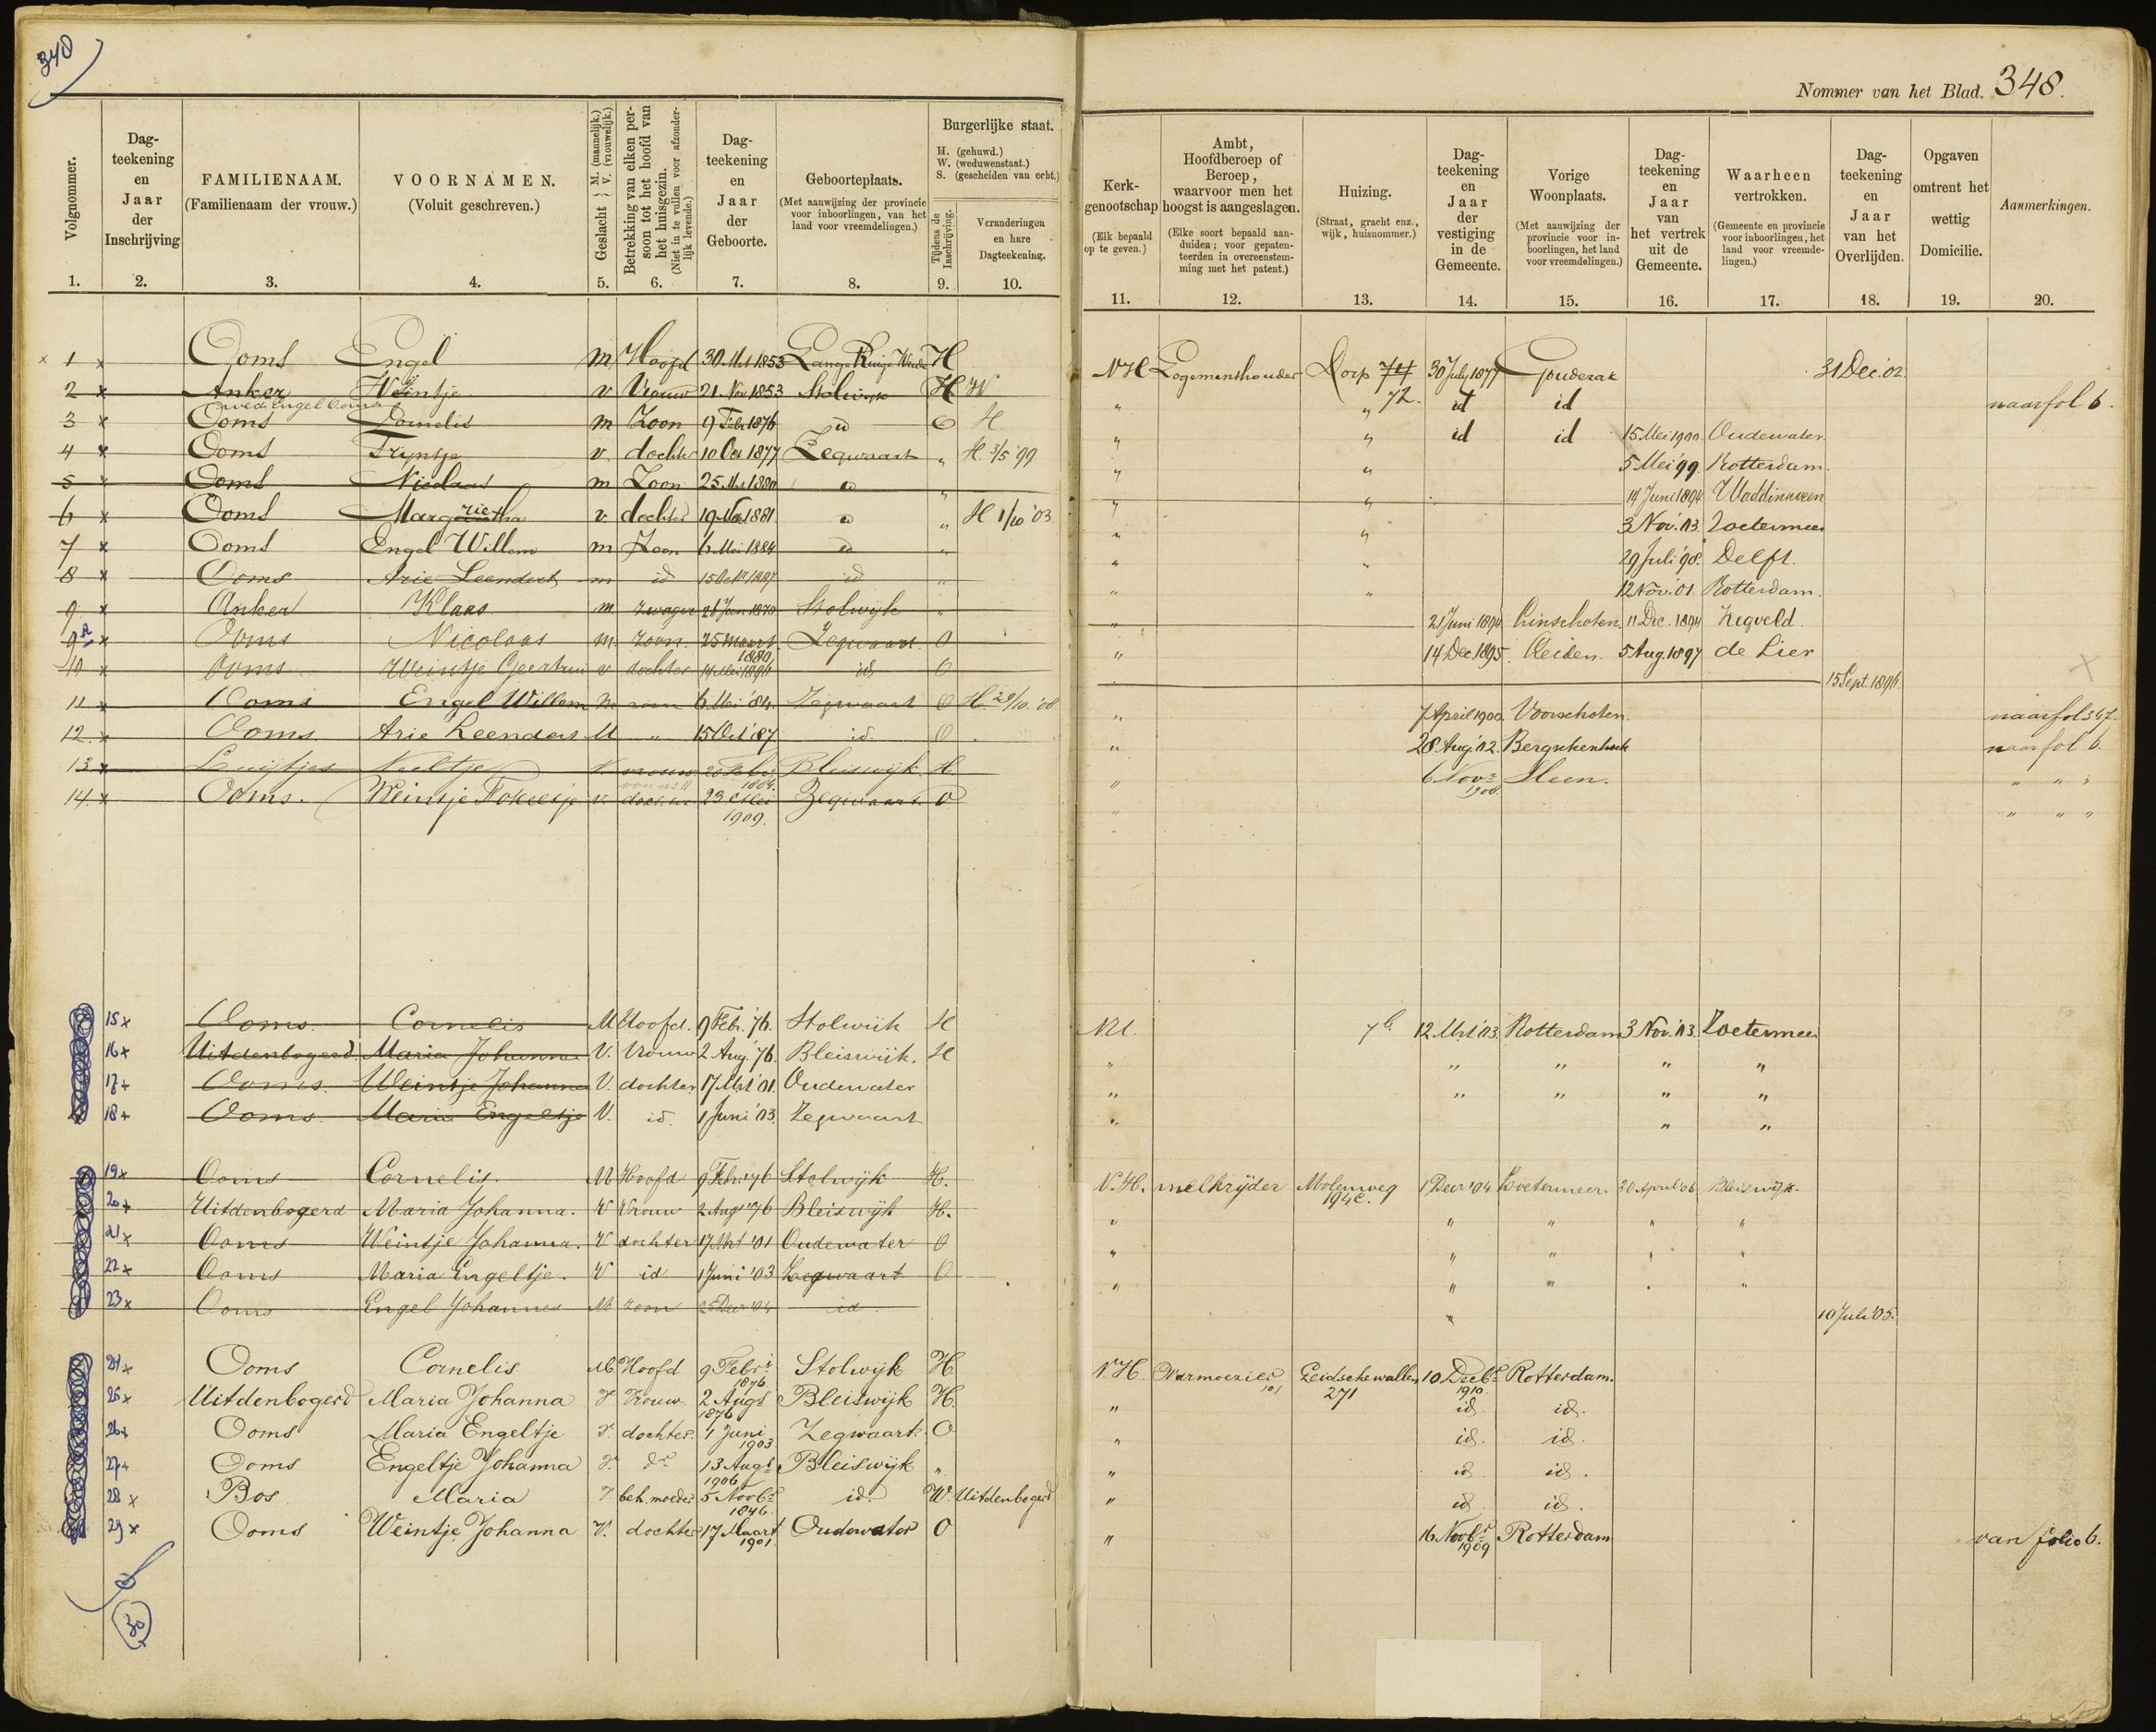 340
Nommer van het Blad. 348.
Volgnommer.
1.
Dag-
teekening
en
Jaar
der
Inschrijving
2.
FAMILIENAAM.
(Familienaam der vrouw.)
3.
VOORNAMEN.
(Voluit geschreven.)
4.
Geslacht } M. (mannelijk.) V. (vrouwelijk.)
5.
Betrekking van elken per-
soon tot het hoofd van
het huisgezin.
(Niet in te vullen voor afzonder-
lijk levende.)
6.
Dag-
teekening
en
Jaar
der
Geboorte.
7.
Geboorteplaats.
(Met aanwijzing der provincie
voor inboorlingen, van het
land voor vreemdelingen.)
8.
Burgerlijke staat.
H. (gehuwd.)
W. (weduwenstaat.)
S. (gescheiden van echt.)
Tijdens de
Inschrijving.
9.
Veranderingen
en hare
Dagteekening.
10.
Kerk-
genootschap
(Elk bepaald
op te geven.)
11.
Ambt,
Hoofdberoep of
Beroep,
waarvoor men het
hoogst is aangeslagen.
(Elke soort bepaald aan-
duiden; voor gepaten-
teerden in overeenstem-
ming met het patent.)
12.
Huizing.
(Straat, gracht enz.,
wijk, huisnommer.)
13.
Dag-
teekening
en
Jaar
der
vestiging
in de
Gemeente.
14.
Vorige
Woonplaats.
(Met aanwijzing der
provincie voor in-
boorlingen, het land
voor vreemdelingen.)
15.
Dag-
teekening
en
Jaar
van
het vertrek
uit de
Gemeente.
16.
Waarheen
vertrokken.
(Gemeente en provincie
voor inboorlingen, het
land voor vreemde-
lingen.)
17.
Dag-
teekening
en
Jaar
van het
Overlijden.
18.
Opgaven
omtrent het
wettig
Domicilie.
19.
Aanmerkingen.
20.
x 1 x Ooms Engel m Hoofd 30 Mrt 1853 Lange Ruige Weide H NH Logementhouder Dorp 74 30 July 1877 Gouderak 31 Dec. '02.
2 x Anker Weintje v Vrouw 21 Nov 1853 Stolwijk H W " " 72. id id naar fol 6.
wed. Engel Ooms
3 x Ooms Cornelis m Zoon 9 Febr 1876 id O H " " id id 15 Mei 1900 Oudewater
4 x Ooms Tryntje v. dochter 10 Oct 1877 Zegwaart " H. 3/5 '99 " " 5 Mei '99. Rotterdam.
5 x Ooms Nicolaas m Zoon 25 Mrt 1880 id " " " 14 Juni 1894 Waddinxveen
6 x Ooms Margrietha v. dochter 19 Nov 1881 id " H 1/10 '03 " " 3 Nov. '03. Zoetermeer
7 x Ooms Engel Willem m Zoon 6 Mei 1884 id " " " 29 Juli '98. Delft.
8 x Ooms Arie Leendert m id 15 Oct 1887 id " " " 12 Nov. '01. Rotterdam.
9 x Anker Klaas m. zwager 28 Jan 1870 Stolwijk " " 21 Juni 1894 Linschoten 11 Dec. 1894 Zegveld
9a x Ooms Nicolaas m. zoon. 25 Maart 1880 Zegwaart O " 14 Dec. 1895. Leiden. 5 Aug. 1897 de Lier
10 x Ooms Weintje Geertrui v dochter 14 Mei 1896 id O 15 Sept. 1896.
11 x Ooms Engel Willem m zoon 6 Mei '84. Zegwaart O H. 29/10. '08 " 7 April 1900. Voorschoten naar fol 347.
12 x Ooms Arie Leendert M " 15 Oct '87 id. O " 28 Aug. '02. Bergschenhoek naar fol 6.
13 x Luijtjes Neeltje V. vrouw 1884. Bleiswijk H. " 6 Novr 1908. Sleen. " " "
14. x Ooms. Weintje Fokeltje v. dochter 23 Mei 1909. Zegwaart O " " " "
15 x Ooms. Cornelis M Hoofd. 9 Febr. '76. Stolwijk H NH. 76. 12 Mrt '03. Rotterdam 3 Nov. '03. Zoetermeer
16 x Uitdenbogerd Maria Johanna V. Vrouw 2 Aug. '76. Bleiswijk. H " " " " "
17 + Ooms. Weintje Johanna V. dochter 17 Mrt '01. Oudewater " " " " "
18 + Ooms. Maria Engeltje V. id. 1 Juni '03. Zegwaart " " "
19 x Ooms Cornelis. M Hoofd 9 Febr. '76 Stolwijk H. N.H. melkrijder Molenweg 194c. 1 Decr '04 Zoetermeer. 30 April '06 Bleiswijk.
20 + Uitdenbogerd Maria Johanna. V Vrouw 2 Augs '76 Bleiswijk H. " " " " "
21 x Ooms Weintje Johanna. V dochter 17 Mrt '01 Oudewater O " " " " "
22 + Ooms Maria Engeltje. V id 1 Juni '03 Zegwaart O " " " " "
23 x Ooms Engel Johannes M zoon 25 Decr '04 id " 10 Juli '05.
24 x Ooms Cornelis M. Hoofd 9 Febri 1876 Stolwijk H. N.H. Warmoezier Leidschewallen 271 10 Decbr 1910. Rotterdam.
25 x Uitdenbogerd Maria Johanna V Vrouw 2 Augs 1876 Bleiswijk H. " id. id.
26 + Ooms Maria Engeltje V dochter. 1 Juni 1903 Zegwaart. O " id. id.
27 + Ooms Engeltje Johanna V. dr 13 Augt 1906 Bleiswijk " " id. id.
28 x Bos Maria V beh. moeder 5 Novbr 1846. id. W. Uitdenbogerd " id. id.
29 x Ooms Weintje Johanna V. dochter 17 Maart 1901. Oudewater O " 16 Novbr 1909 Rotterdam van folio 6.
30